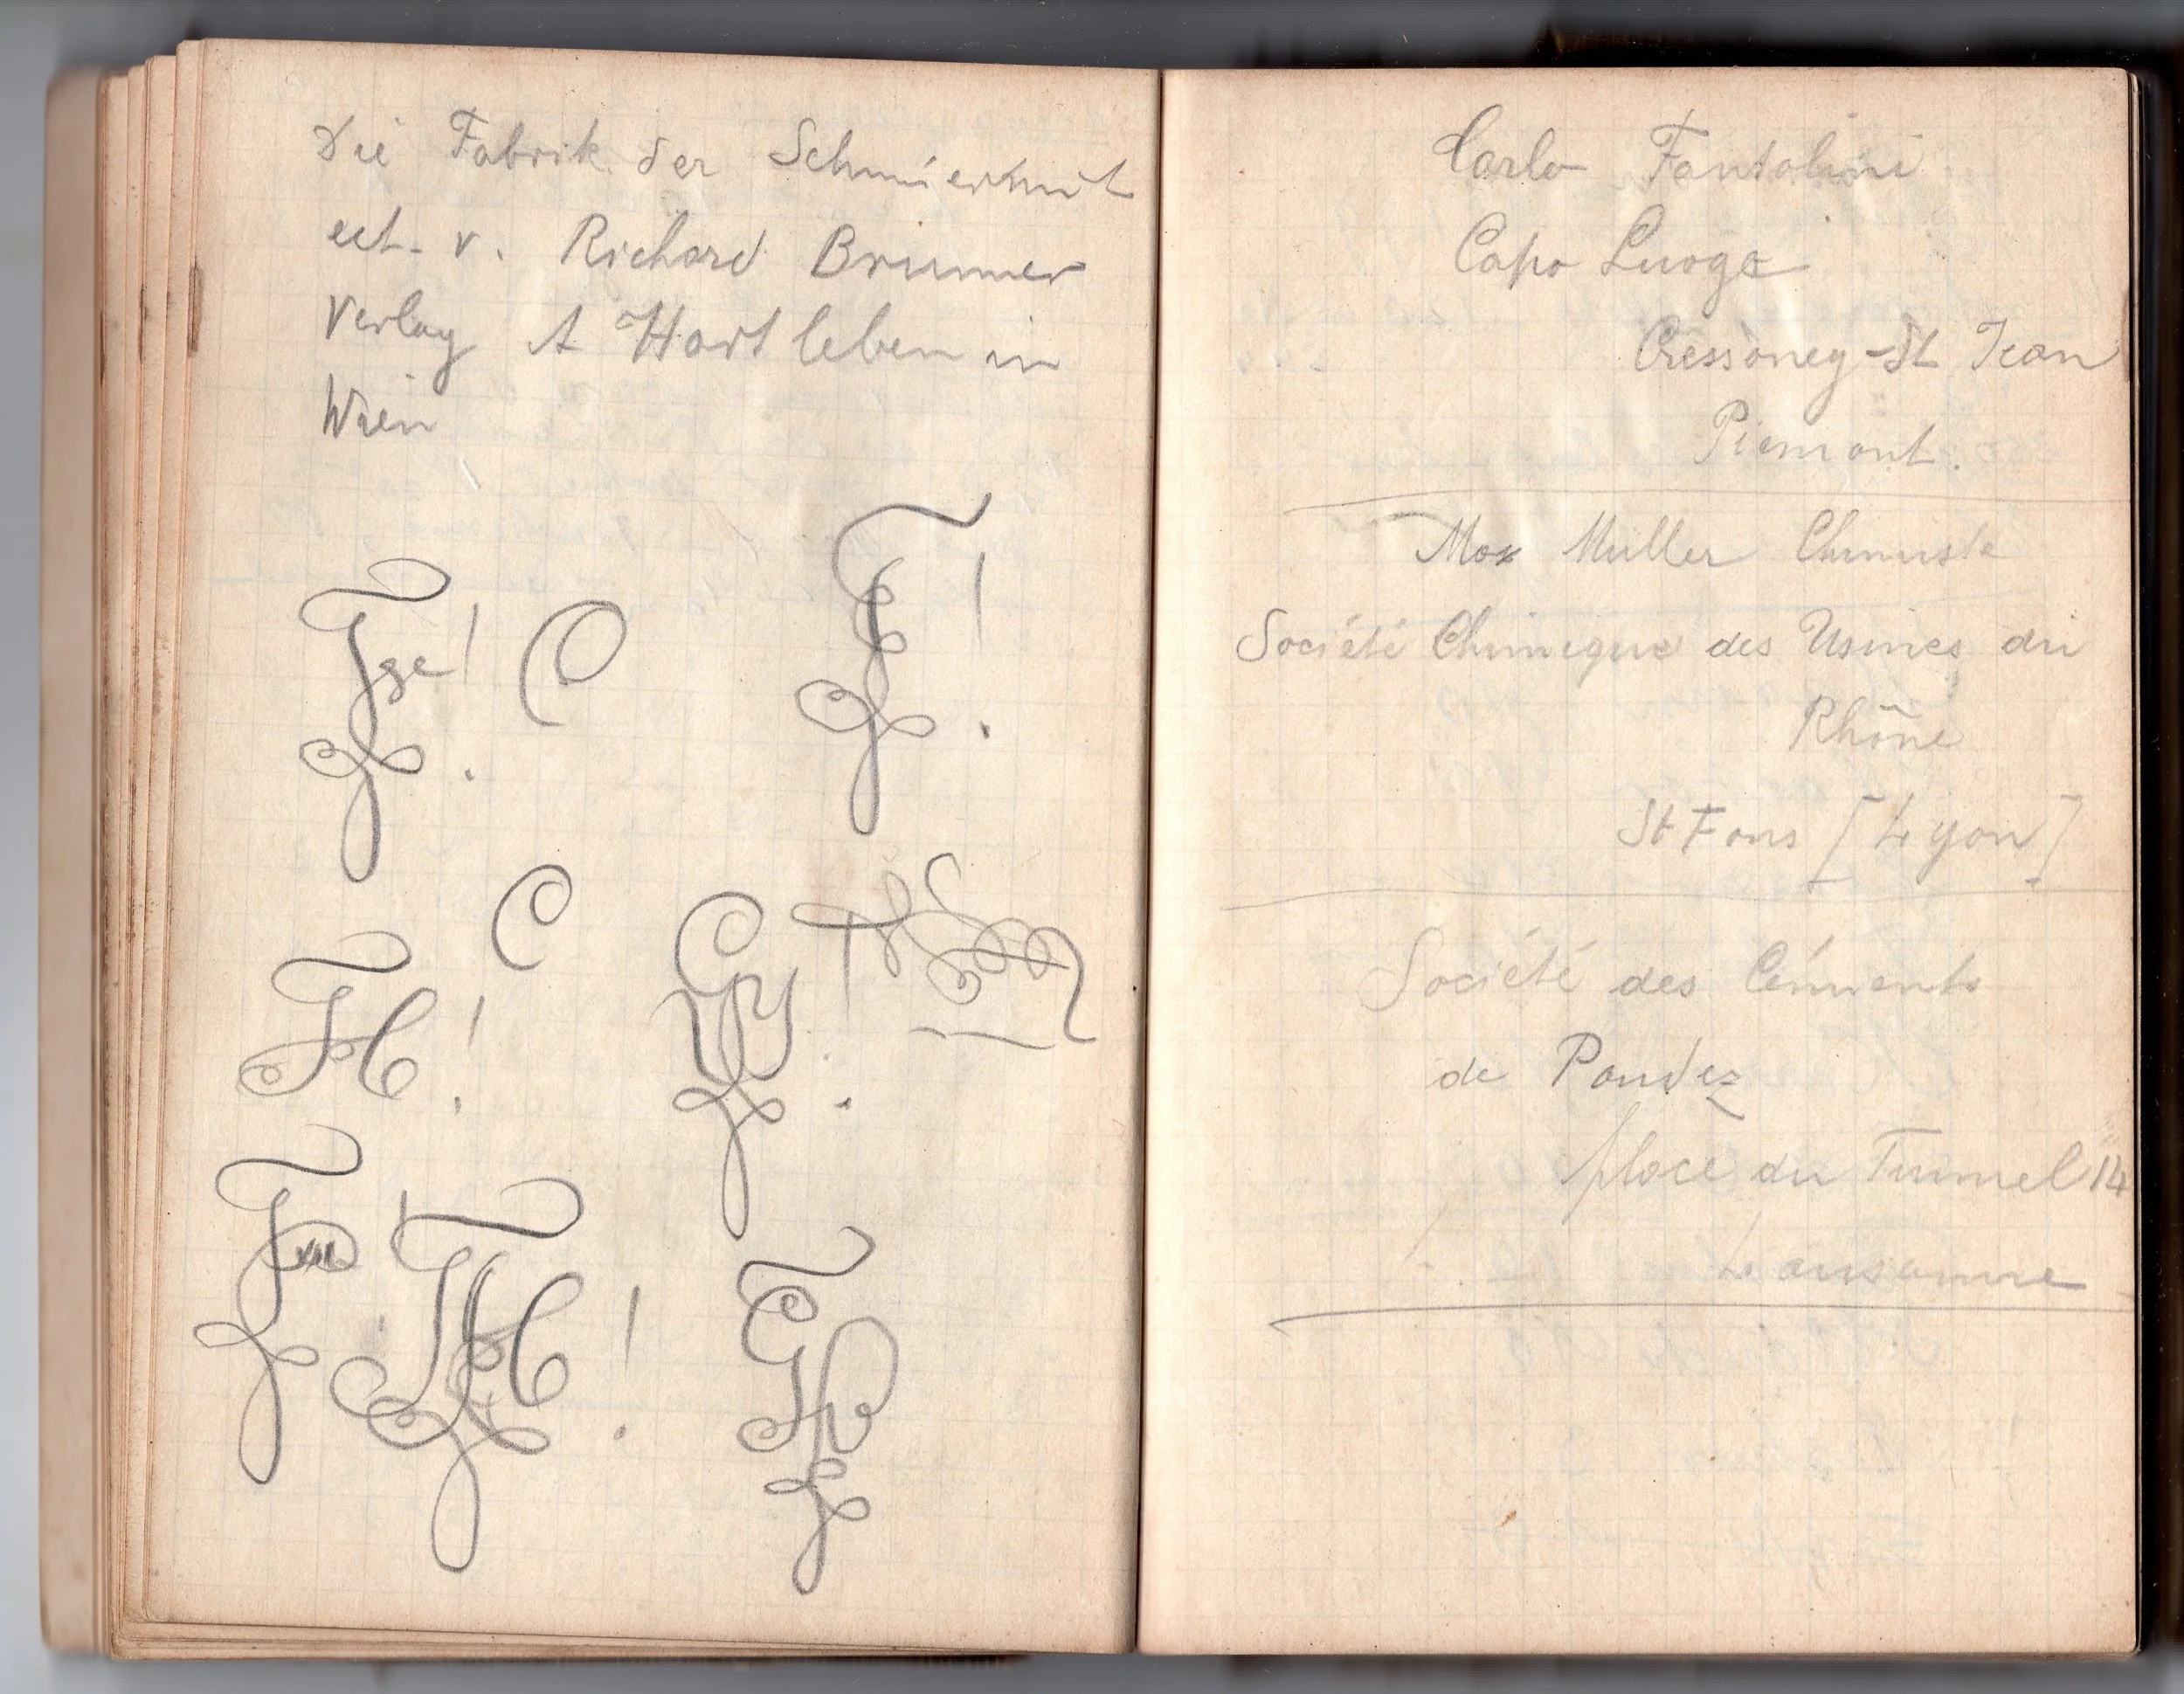 Die Fabrik der Schmiermit
ect. v. Richard Brunner
Verlag A Hartleben in
Wien
Carlo Fantolini
Capo Luogo
Gressoney-St Jean
Piemont.
Max Müller Chimiste
Société Chimique des Usines du
Rhône
St Fons [Lyon]
Société des Céments
de Paudez
place du Tunnel 14
Lausanne